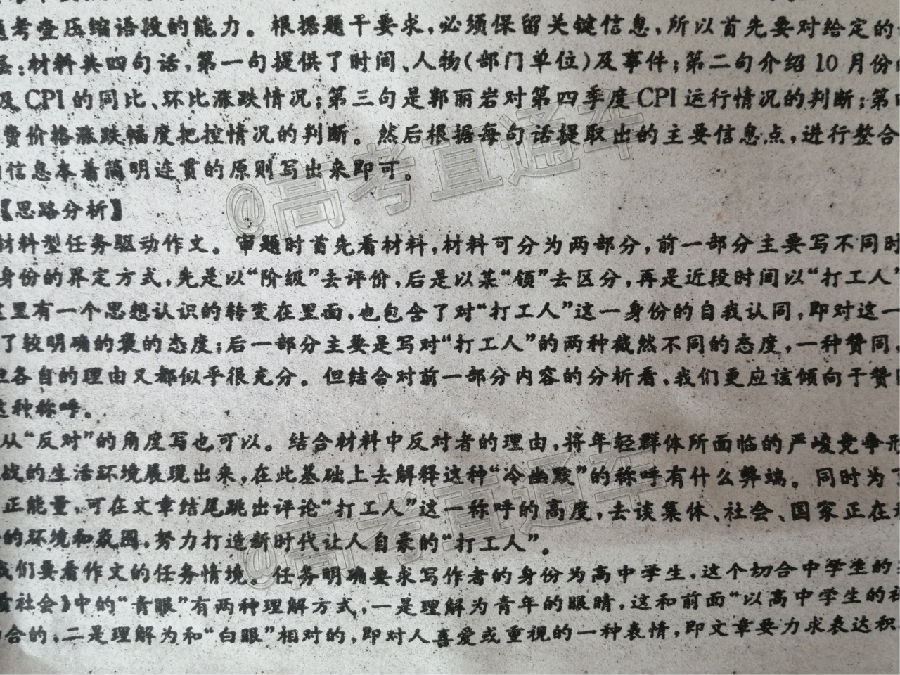 考查压缩语段的能力。根据题干要求,必须保留关键信息,所以首先要对给定的
:材料共四句话,第一句提供了时间、人物(部门单位)及事件;第二句介绍10月份
及CPI的同比、环比涨跌情况;第三句是郭丽岩对第四季度CPI运行情况的判断;第
费价格涨跌幅度把控情况的判断。然后根据每句话提取出的主要信息点,进行整合
信息本着简明连贯的原则写出来即可。
【思路分析】
材料型任务驱动作文。审题时首先看材料,材料可分为两部分,前一部分主要写不同时
身份的界定方式,先是以“阶级”去评价,后是以某“领”去区分,再是近段时间以“打工人”
里有一个思想认识的转变在里面,也包含了对“打工人”这一身份的自我认同,即对这一
了较明确的褒的态度;后一部分主要是写对“打工人”的两种截然不同的态度,一种赞同,
各自的理由又都似乎很充分。但结合对前一部分内容的分析看,我们更应该倾向于赞
这种称呼。
从“反对”的角度写也可以。结合材料中反对者的理由,将年轻群体所面临的严峻竞争
战的生活环境展现出来,在此基础上去解释这种“冷幽默”的称呼有什么弊端。同时为了
正能量,可在文章结尾跳出评论“打工人”这一称呼的高度,去谈集体、社会、国家正在
的环境和氛围,努力打造新时代让人自豪的“打工人”。
我们要看作文的任务情境。任务明确要求写作者的身份为高中学生,这个切合中学生的
看社会》中的“青眼”有两种理解方式,一是理解为青年的眼睛,这和前面“以高中学生的
合的,二是理解为和“白眼”相对的,即对人喜爱或重视的一种表情,即文章要力求表达积
@高考直通车
@高考直通车